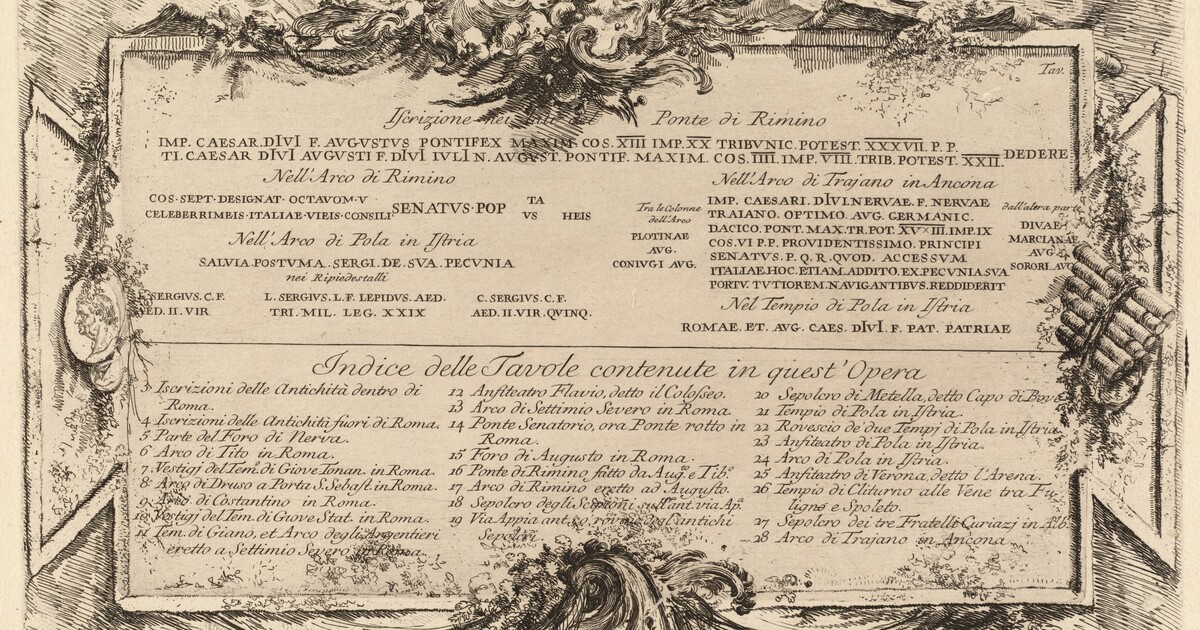 Tav.
Iscrizione nei del Ponte di Rimino
IMP. CAESAR. DIVI F. AVGVSTVS PONTIFEX MAXIM. COS. XIII IMP. XX TRIBVNIC. POTEST. XXXVII. P. P.
TI. CAESAR DIVI AVGVSTI F. DIVI IVLI N. AVGVST. PONTIF. MAXIM. COS. IIII. IMP. VIII. TRIB. POTEST. XXII. DEDERE
Nell'Arco di Rimino
COS·SEPT·DESIGNAT·OCTAVOM·V
CELEBERRIMEIS·ITALIAE·VIEIS·CONSILI SENATVS·POP TA VS HEIS
Nell'Arco di Pola in Istria
SALVIA. POSTVMA. SERGI. DE. SVA. PECVNIA
nei Ripiedestalli
L. SERGIVS. C. F. L. SERGIVS. L. F. LEPIDVS. AED. C. SERGIVS. C. F.
AED. II. VIR TRI. MIL. LEG. XXIX AED. II. VIR. QVINQ.
Nell'Arco di Trajano in Ancona
Tra le Colonne dell'Arco
PLOTINAE
AVG.
CONIVGI AVG.
IMP. CAESARI. DIVI. NERVAE. F. NERVAE
TRAIANO. OPTIMO. AVG. GERMANIC.
DACICO. PONT. MAX. TR. POT. XVIIII. IMP. IX
COS. VI P. P. PROVIDENTISSIMO. PRINCIPI
SENATVS. P. Q. R. QVOD. ACCESSVM
ITALIAE. HOC. ETIAM. ADDITO. EX. PECVNIA. SVA
PORTV. TVTIOREM. NAVIGANTIBVS. REDDIDERIT
dall'altra parte
DIVAE
MARCIANAE
AVG.
SORORI. AVG
Nel Tempio di Pola in Istria
ROMAE. ET. AVG. CAES. DIVI. F. PAT. PATRIAE
Indice delle Tavole contenute in quest'Opera
3 Iscrizioni delle Antichità dentro di
Roma.
4 Iscrizioni delle Antichità fuori di Roma.
5 Parte del Foro di Nerva.
6 Arco di Tito in Roma.
7 Vestigj del Tem.º di Giove Tonan. in Roma.
8 Arco di Druso a Porta S. Sebast. in Roma.
9 Arco di Costantino in Roma.
10 Vestigj del Tem. di Giove Stat. in Roma.
11 Tem. di Giano, et Arco degli Argentieri
eretto a Settimio Severo in Roma.
12 Anfiteatro Flavio, detto il Colosseo.
13 Arco di Settimio Severo in Roma.
14 Ponte Senatorio, ora Ponte rotto in
Roma.
15 Foro di Augusto in Roma.
16 Ponte di Rimino fatto da Aug.º e Tib.º
17 Arco di Rimino eretto ad Augusto.
18 Sepolcro degli Scipioni sull'ant. via Ap.ª
19 Via Appia ant. degl'antichi
Sepolcri
20 Sepolcro di Metella, detto Capo di Bove
21 Tempio di Pola in Istria.
22 Rovescio de' due Tempj di Pola in Istria
23 Anfiteatro di Pola in Istria.
24 Arco di Pola in Istria.
25 Anfiteatro di Verona, detto l'Arena.
26 Tempio di Cliturno alle Vene tra Fu-
ligno e Spoleto.
27 Sepolcro dei tre Fratelli Curiazj in Alb.
28 Arco di Trajano in Ancona